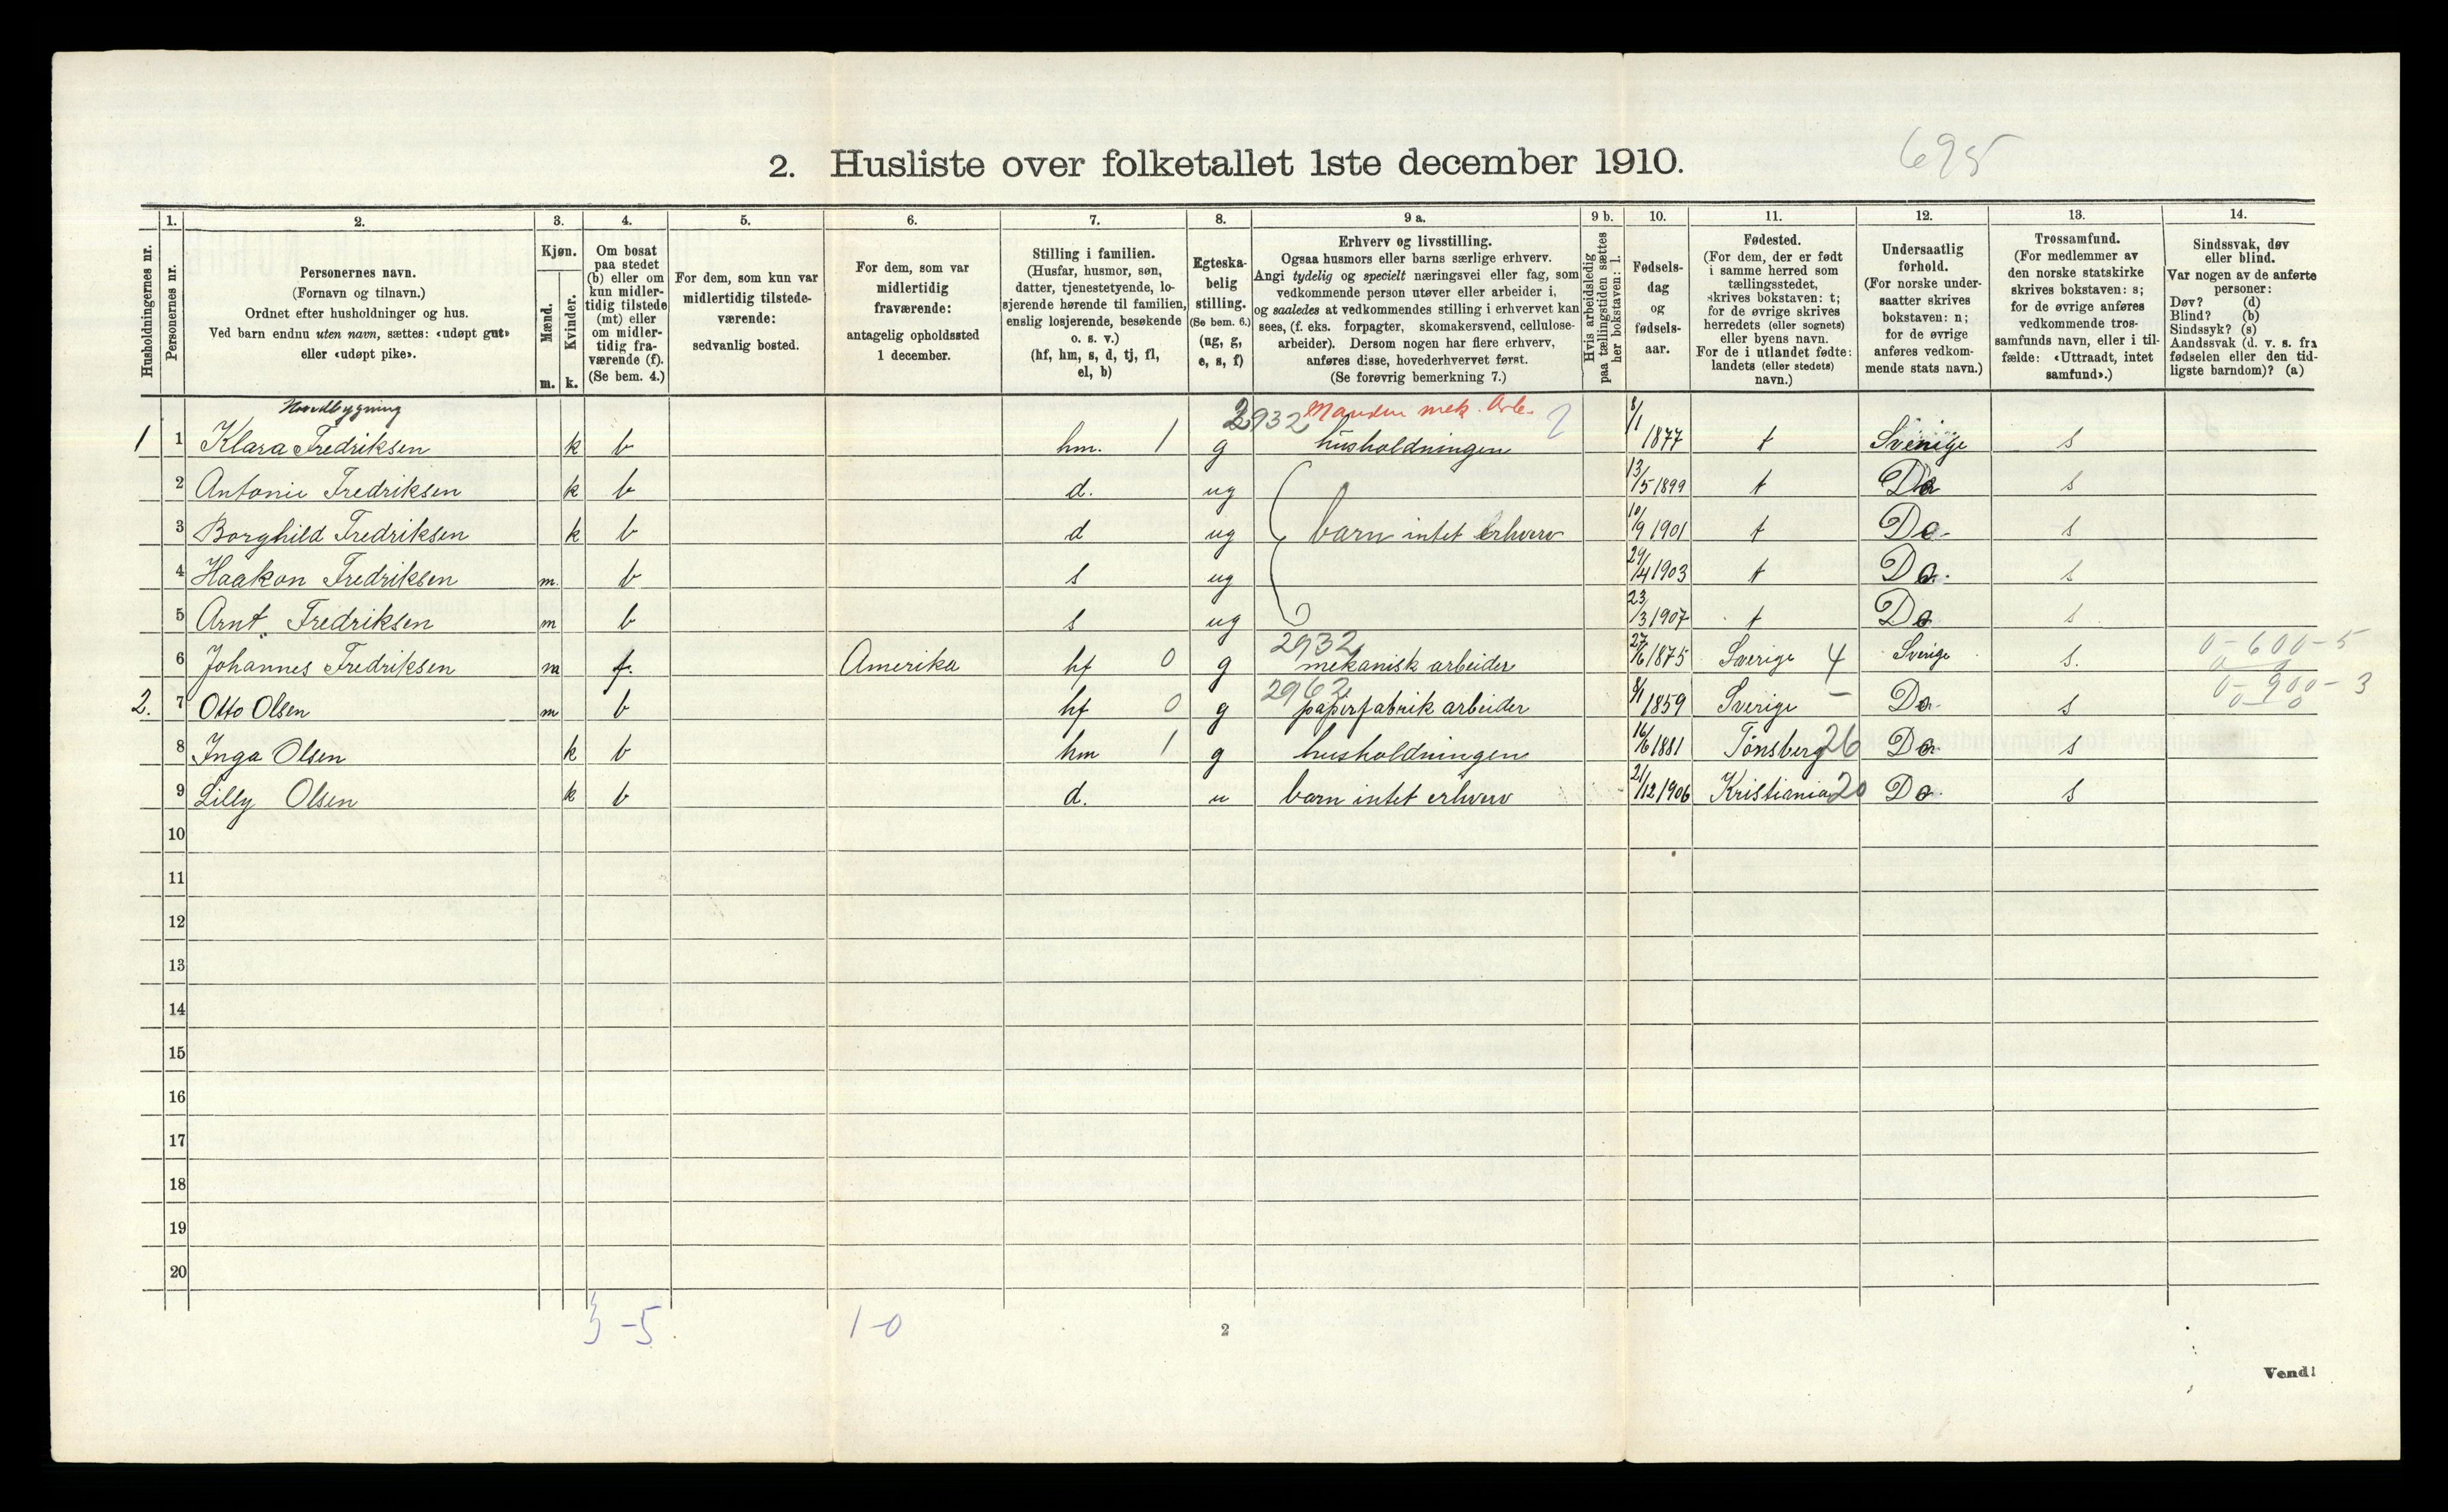 695
2. Husliste over folketallet 1ste december 1910.
Husholdningernes nr.
1. Personernes nr.
2. Personernes navn.
(Fornavn og tilnavn.)
Ordnet efter husholdninger og hus.
Ved barn endnu uten navn, sættes: «udøpt gut»
eller «udøpt pike».
3. Kjøn.
Mænd. m.
Kvinder. k.
4. Om bosat
paa stedet
(b) eller om
kun midler-
tidig tilstede
(mt) eller
om midler-
tidig fra-
værende (f).
(Se bem. 4.)
5. For dem, som kun var
midlertidig tilstede-
værende:
sedvanlig bosted.
6. For dem, som var
midlertidig
fraværende:
antagelig opholdssted
1 december.
7. Stilling i familien.
(Husfar, husmor, søn,
datter, tjenestetyende, lo-
sjerende hørende til familien,
enslig losjerende, besøkende
o. s. v.)
(hf, hm, s, d, tj, fl,
el, b)
8. Egteska-
belig
stilling.
(Se bem. 6.)
(ug, g,
e, s, f)
9 a. Erhverv og livsstilling.
Ogsaa husmors eller barns særlige erhverv.
Angi tydelig og specielt næringsvei eller fag, som
vedkommende person utøver eller arbeider i,
og saaledes at vedkommendes stilling i erhvervet kan
sees, (f. eks. forpagter, skomakersvend, cellulose-
arbeider). Dersom nogen har flere erhverv,
anføres disse, hovederhvervet først.
(Se forøvrig bemerkning 7.)
9 b. Hvis arbeidsledig
paa tællingstiden sættes
her bokstaven: l.
10. Fødsels-
dag
og
fødsels-
aar.
11. Fødested.
(For dem, der er født
i samme herred som
tællingsstedet,
skrives bokstaven: t;
for de øvrige skrives
herredets (eller sognets)
eller byens navn.
For de i utlandet fødte:
landets (eller stedets)
navn.)
12. Undersaatlig
forhold.
(For norske under-
saatter skrives
bokstaven: n;
for de øvrige
anføres vedkom-
mende stats navn.)
13. Trossamfund.
(For medlemmer av
den norske statskirke
skrives bokstaven: s;
for de øvrige anføres
vedkommende tros-
samfunds navn, eller i til-
fælde: «Uttraadt, intet
samfund».)
14. Sindssvak, døv
eller blind.
Var nogen av de anførte
personer:
Døv? (d)
Blind? (b)
Sindssyk? (s)
Aandssvak (d. v. s. fra
fødselen eller den tid-
ligste barndom)? (a)
Hovedbygning 2932 Manden mek. Arb. 2
1 1 Klara Fredriksen k b hm. 1 g husholdningen 8/1 1877 t Sverige s
2 Antonie Fredriksen k b d. ug 13/5 1899 t Do s
3 Borghild Fredriksen k b d ug barn intet erhverv 10/9 1901 t Do s
4 Haakon Fredriksen m. b s ug 29/4 1903 t Do. s
5 Arnt Fredriksen m b s ug 23/3 1907 t Do s
2932
6 Johannes Fredriksen m f. Amerika hf 0 g mekanisk arbeider 27/6 1875 Sverige 4 Sverige s. 0-600-5
2962
2. 7 Otto Olsen m b hf 0 g papirfabrik arbeider 8/1 1859 Sverige - Do s 0-900-3
8 Inga Olsen k b hm 1 g husholdningen 16/6 1881 Tønsberg 26 Do s
9 Lilly Olsen k b d. u barn intet erhverv 21/12 1906 Kristiania 20 Do s
10
11
12
13
14
15
16
17
18
19
20
3-5 1-0
2
Vend!